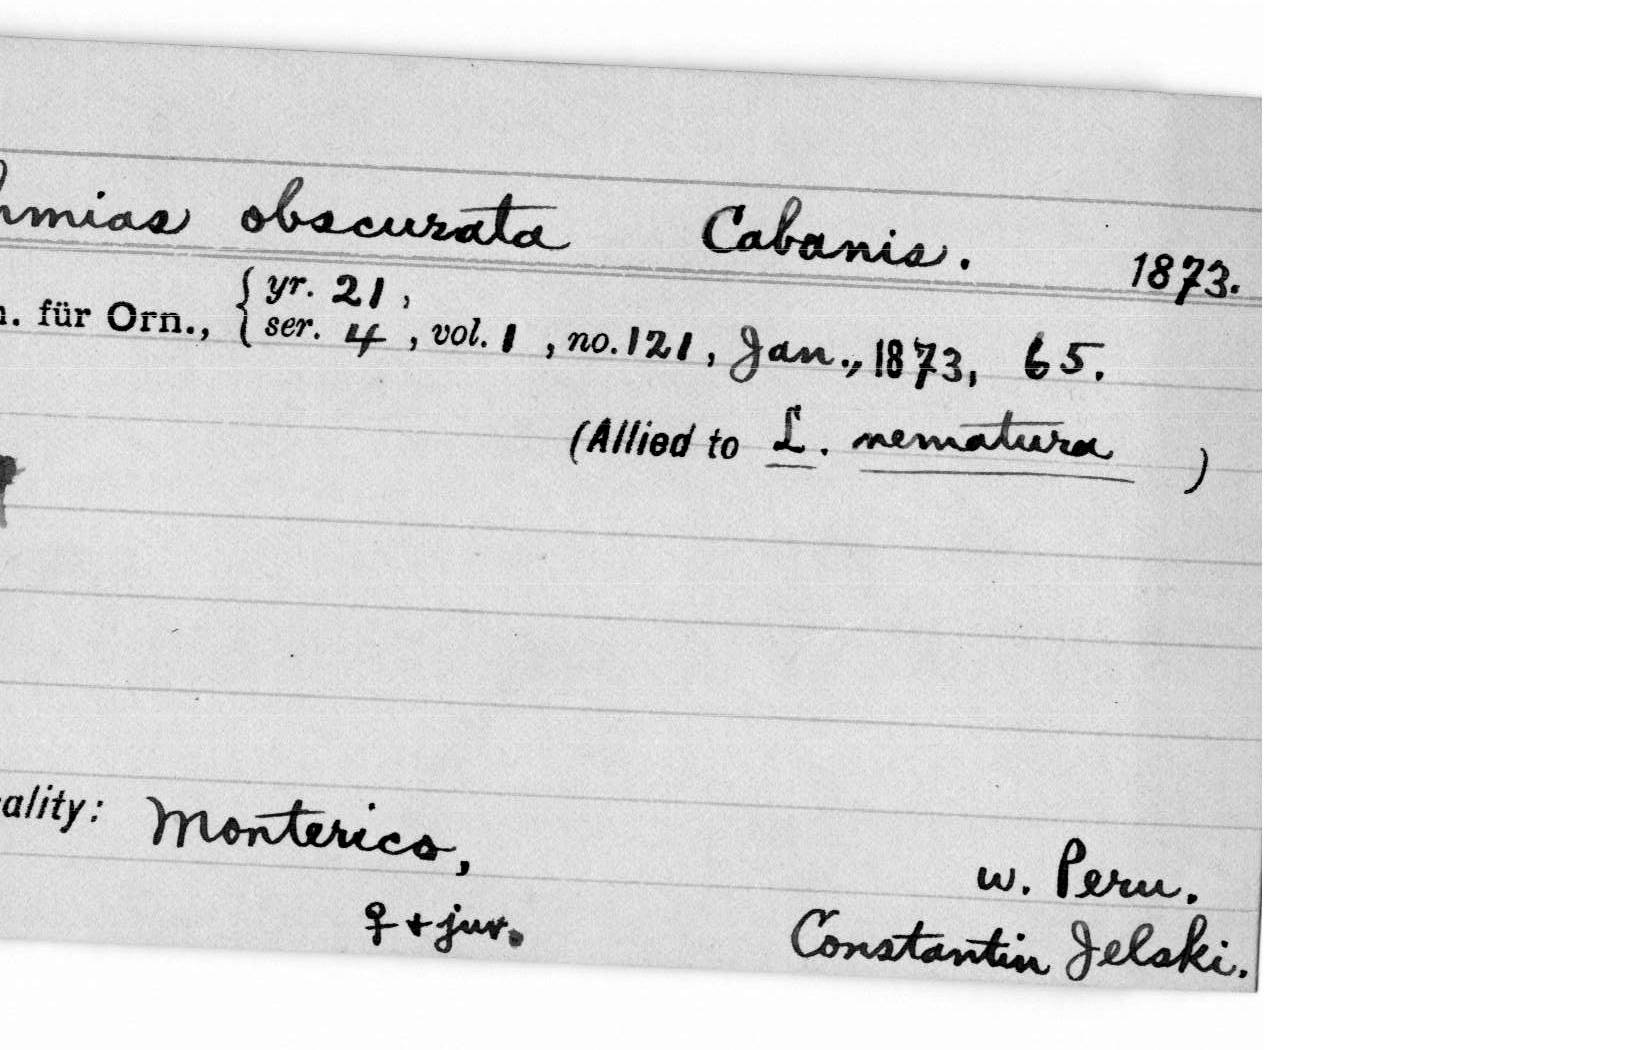 hmias obscurata Cabanis. 1873.
n. für Orn., { yr. 21,
ser. 4, vol. 1, no. 121, Jan., 1873, 65.
(Allied to L. nematura )
ality: Monterico, w. Peru.
♀ + juv. Constantin Jelski.